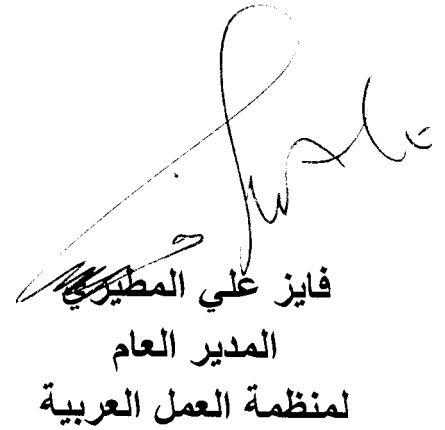 فايز علي المطيري
المدير العام
لمنظمة العمل العربية